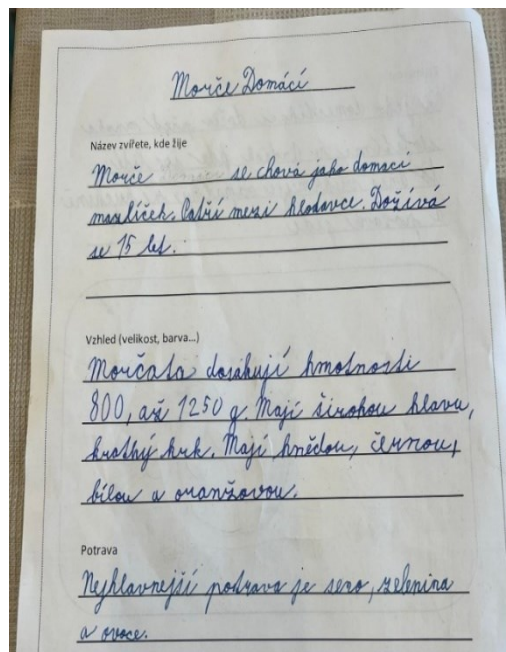 Morče Domácí
Název zvířete, kde žije
Morče se chová jako domací
mazlíček. Patří mezi hlodavce. Dožívá
se 15 let.
Vzhled (velikost, barva...)
Morčata dosahují hmotnosti
800, až 1250 g. Mají širohou hlavu,
krathý krk. Mají hnědou, černou,
bílou a oranžovou.
Potrava
Nejhlavnejší potrava je seno, zelenina
a ovoce.